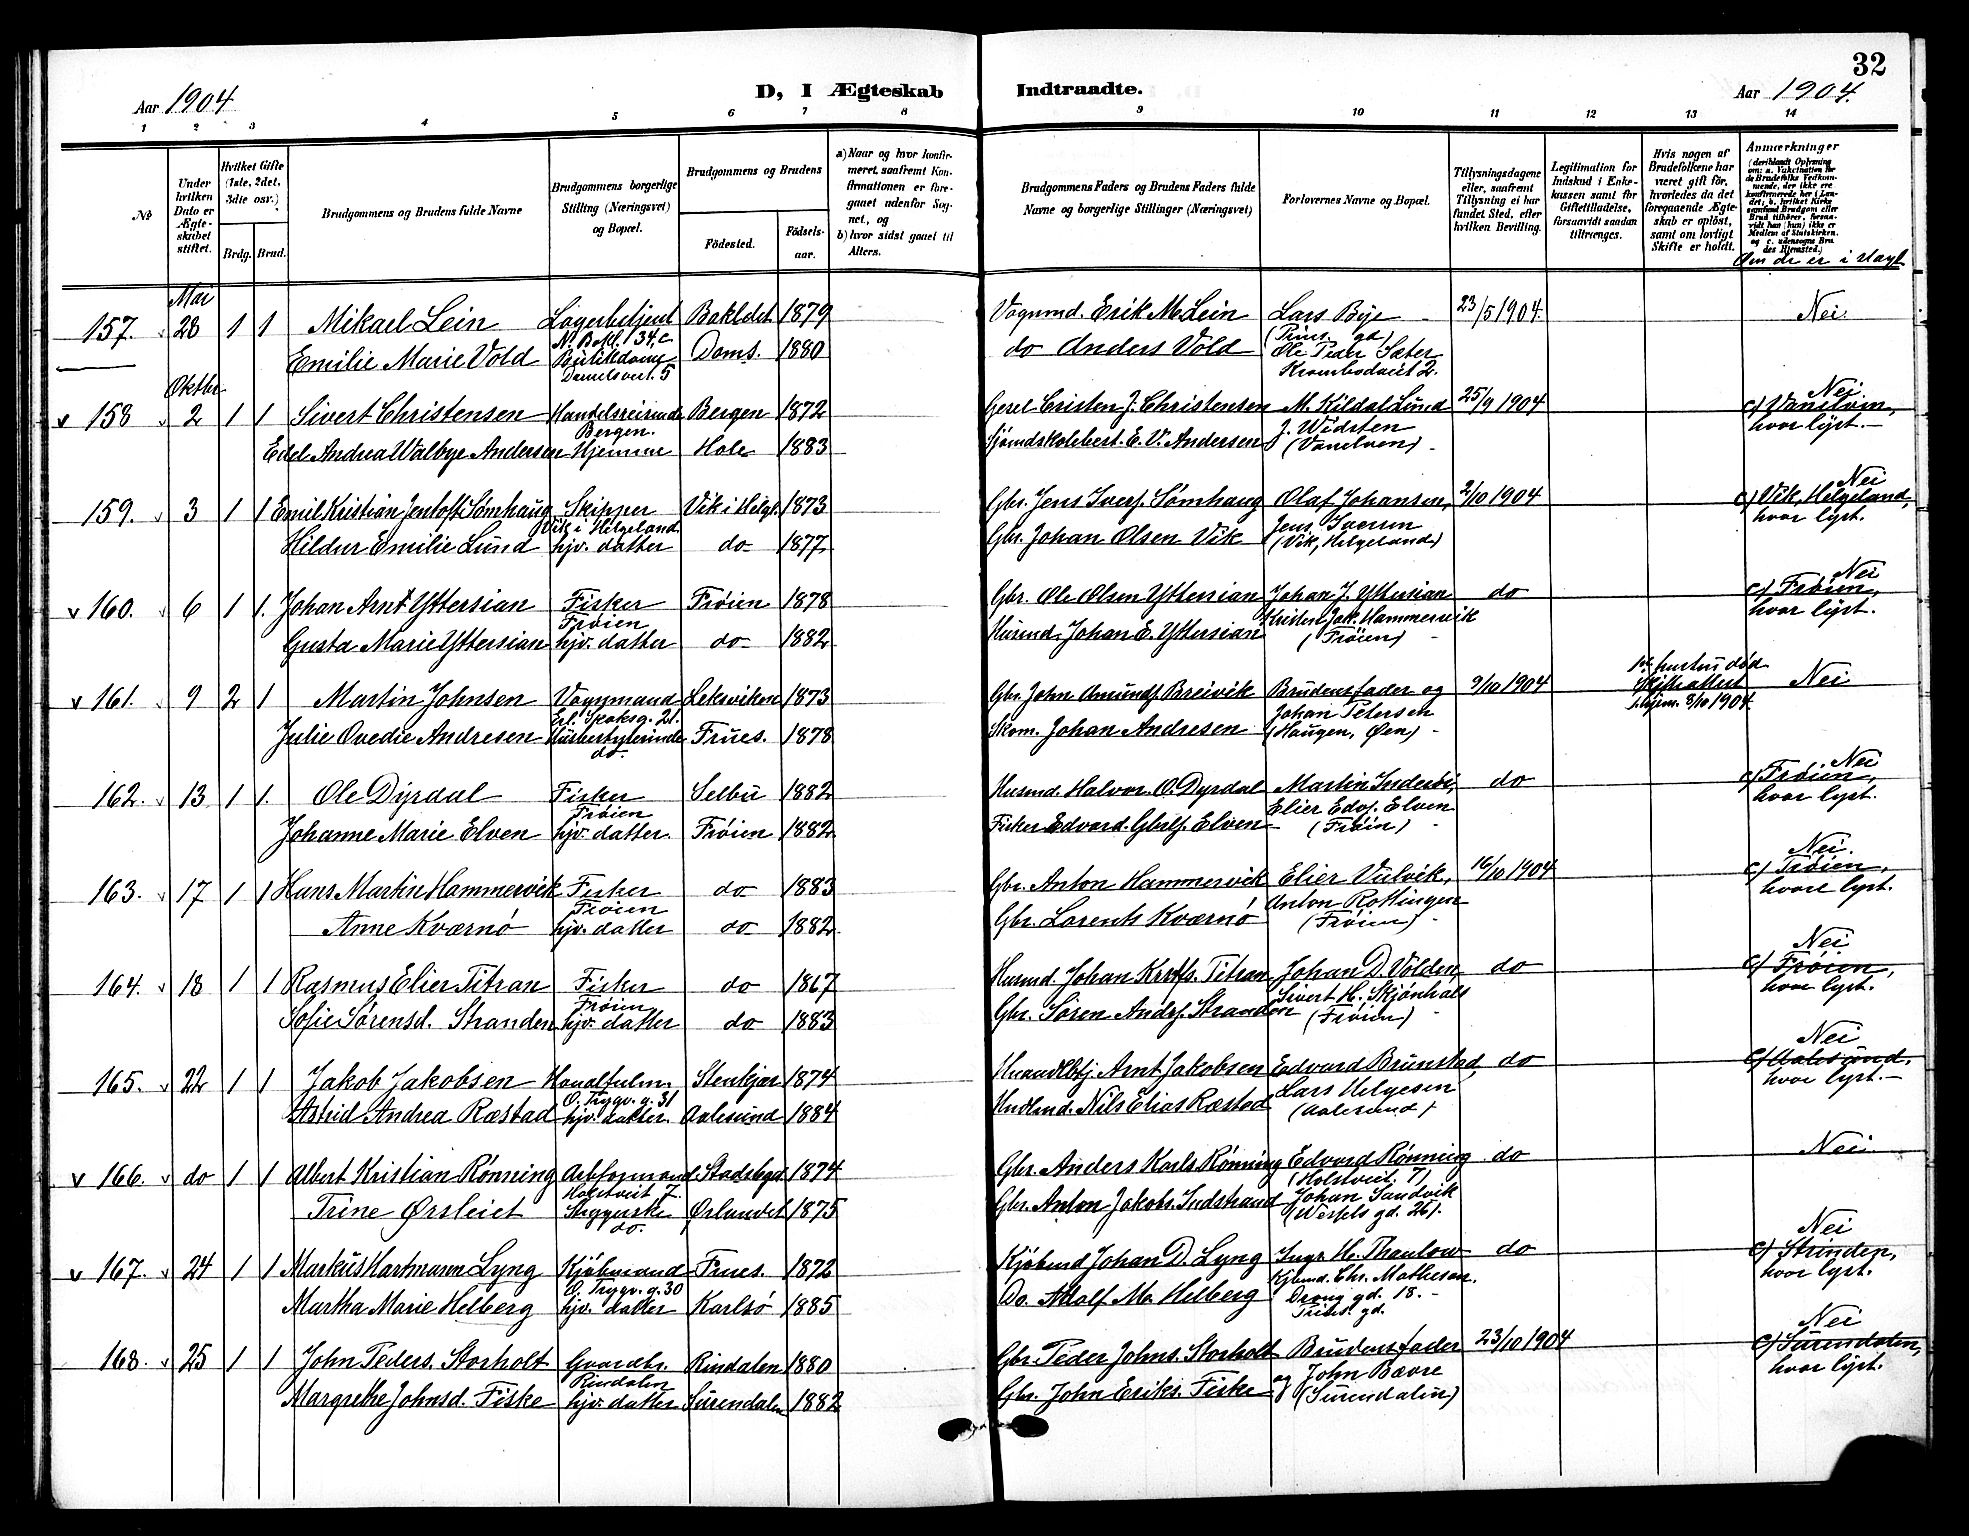 32
Aar 1904
D, I Ægteskab Indtraadte.
Aar 1904.
1 2 3 4 5 6 7 8 9 10 11 12 13 14
No
Under hvilken Dato er Ægteskabet stiftet.
Hvilket Gifte (1ste, 2det, 3die osv.)
Brdg. Brud.
Brudgommens og Brudens fulde Navne
Brudgommens borgerlige Stilling (Næringsvei) og Bopæl.
Brudgommens og Brudens
Födested. Födselsaar.
a) Naar og hvor konfirmeret, saafremt Konfirmationen er foregaaet udenfor Sognet, og
b) hvor sidst gaaet til Alters.
Brudgommens Faders og Brudens Faders fulde Navne og borgerlige Stillinger (Næringsvei)
Forlovernes Navne og Bopæl.
Tillysningsdagene eller, saafremt Tillysning ei har fundet Sted, efter hvilken Bevilling.
Legitimation for Indskud i Enkekassen samt for Giftetilladelse, forsaavidt saadan tiltrænges.
Hvis nogen af Brudefolkene har været gift för, hvorledes da det foregaaende Ægteskab er oplöst, samt om lovligt Skifte er holdt.
Anmærkninger
(deriblandt Oplysning om: a. Vakcination for de Brudefolks Vedkommende, der ikke ere konfirmerede her i Landet; b. hvilket Kirkesamfund Brudgom eller Brud tilhörer, forsaavidt han (hun) ikke er Medlem af Statskirken, og c. udensogns Brudes Hjemsted.)
Om de er i slægt
Mai
157. 28 1 1 Mikael Lein Lagerbetjent Bakldet 1879 Vognmd. Erik M. Lein Lars Bye 23/5 1904. Nei
N. Bakl. 34, c (Prins. gd)
Emilie Marie Vold Doms. 1880 do Anders Vold Ole Peder Sæter
Danielsveit. 5 Krambodveit 2.
Oktbr.
v 158 2 1 1 Sivert Christensen Handelsreisende Bergen 1872 Christensen M. Kildal Lund 25/9 1904 Nei
Bergen. J. Widsten c) Vanelven,
Edel Andrea Walbye Andersen Hjemme Hole 1883 E. V. Andersen (Vanelven) hvor lyst.
159. 3 1 1 Emil Kristian Jentoft Sømhaug Skipper Vik i Helgl. 1873 Gbr. Jens Iversf. Sømhaug Olaf Johansen, 2/10 1904 Nei
Vik i Helgeland Jens Iversen c) Vik, Helgeland,
Hildur Emilie Lund hjv. datter do 1877 Gbr. Johan Olsen Vik (Vik, Helgeland) hvor lyst.
v 160. 6 1 1. Johan Arnt Yttersian Fisker Frøien 1878 Gbr. Ole Olsen Yttersian Johan J. Yttersian do Nei
Frøien Kristen Jak. Hammervik c) Frøien,
Gusta Marie Yttersian hjv. datter do 1882 Husmd. Johan E. Yttersian (Frøien) hvor lyst.
v 161. 9 2 1 Martin Johnsen Vognmand Leksviken 1873 Gbr. John Amundf. Breivik Brudens fader og 9/10 1904 Nei
21. Johan Petersen Skifteattest
Julie Ovedie Andresen Husbestyrerinde Frues. 1878 Skom. Johan Andresen (Haugen, Øen) 8/10 1904.
do.
162. 13 1 1. Ole Dyrdal Fisker Selbu 1882 Husmd. Halvor O. Dyrdal Martin Inderöi, do Nei
Frøien Elier Edvf. Elven c) Frøien,
Johanne Marie Elven hjv. datter. Frøien 1882 Fisker Edvard Elven (Frøien) hvor lyst.
163. 17 1 1 Hans Martin Hammervik Fisker do 1883 Gbr. Anton Hammervik Elier Vulvik, 16/10 1904 Nei.
Frøien Anton Rottingen c) Frøien,
Anne Kværnö hjv. datter do 1882 Gbr. Lorents Kværnö (Frøien) hvor lyst.
164. 18 1 1 Rasmus Elier Titran Fisker do 1867 Husmd. Johan Titran Johan D. Volden, do Nei
Frøien Sivert H. Skjönhals c) Frøien,
Sofie Sørensd. Stranden hjv. datter do 1883 Gbr. Sören Andrf. Stranden (Frøien) hvor lyst.
165. 22 1 1 Jakob Jakobsen Stenkjær 1874 Arnt Jakobsen Edvard Brunstad, do Nei
O. Trygv. g. 31 Lars Helgesen c) Aalesund,
Astrid Andrea Ræstad hjv. datter. Aalesund 1884 Nils Elias Ræstad (Aalesund) hvor lyst.
v 166. do 1 1 Albert Kristian Rønning Arbformand Stadsbgd. 1874 Gbr. Anders Karls. Rønning Edvard Rønning do Nei
Holstveit 7. (Holstveit. 7)
Trine Ørsleiet do. Ørlandet 1875 Gbr. Anton Jakobs. Indstrand Johan Sandvik
(Wesfels gd. 26).
v 167. 24 1 1 Markus Hartmann Lyng Kjöbmand Frues. 1872 Kjöbmd Johan D. Lyng Ingr. H. Thaulow do Nei
O. Trygv. g. 30 Kjbmd. Chr. Mathesen. c) Strinden,
Martha Marie Helberg hjv. datter Karlsö 1885 Do. Adolf M. Helberg Drong. gd. 18. hvor lyst.
168. 25 1 1 John Peders. Storholt Gaardbr. Rindalen 1880 Gbr. Peder Johns. Storholt Brudens fader 23/10 1904 Nei
Rindalen og John Bævre c) Surendalen,
Margrethe Johnsd. Fiske hjv. datter Surendalen 1882 Gbr. John Eriks. Fiske (Surendalen) hvor lyst.